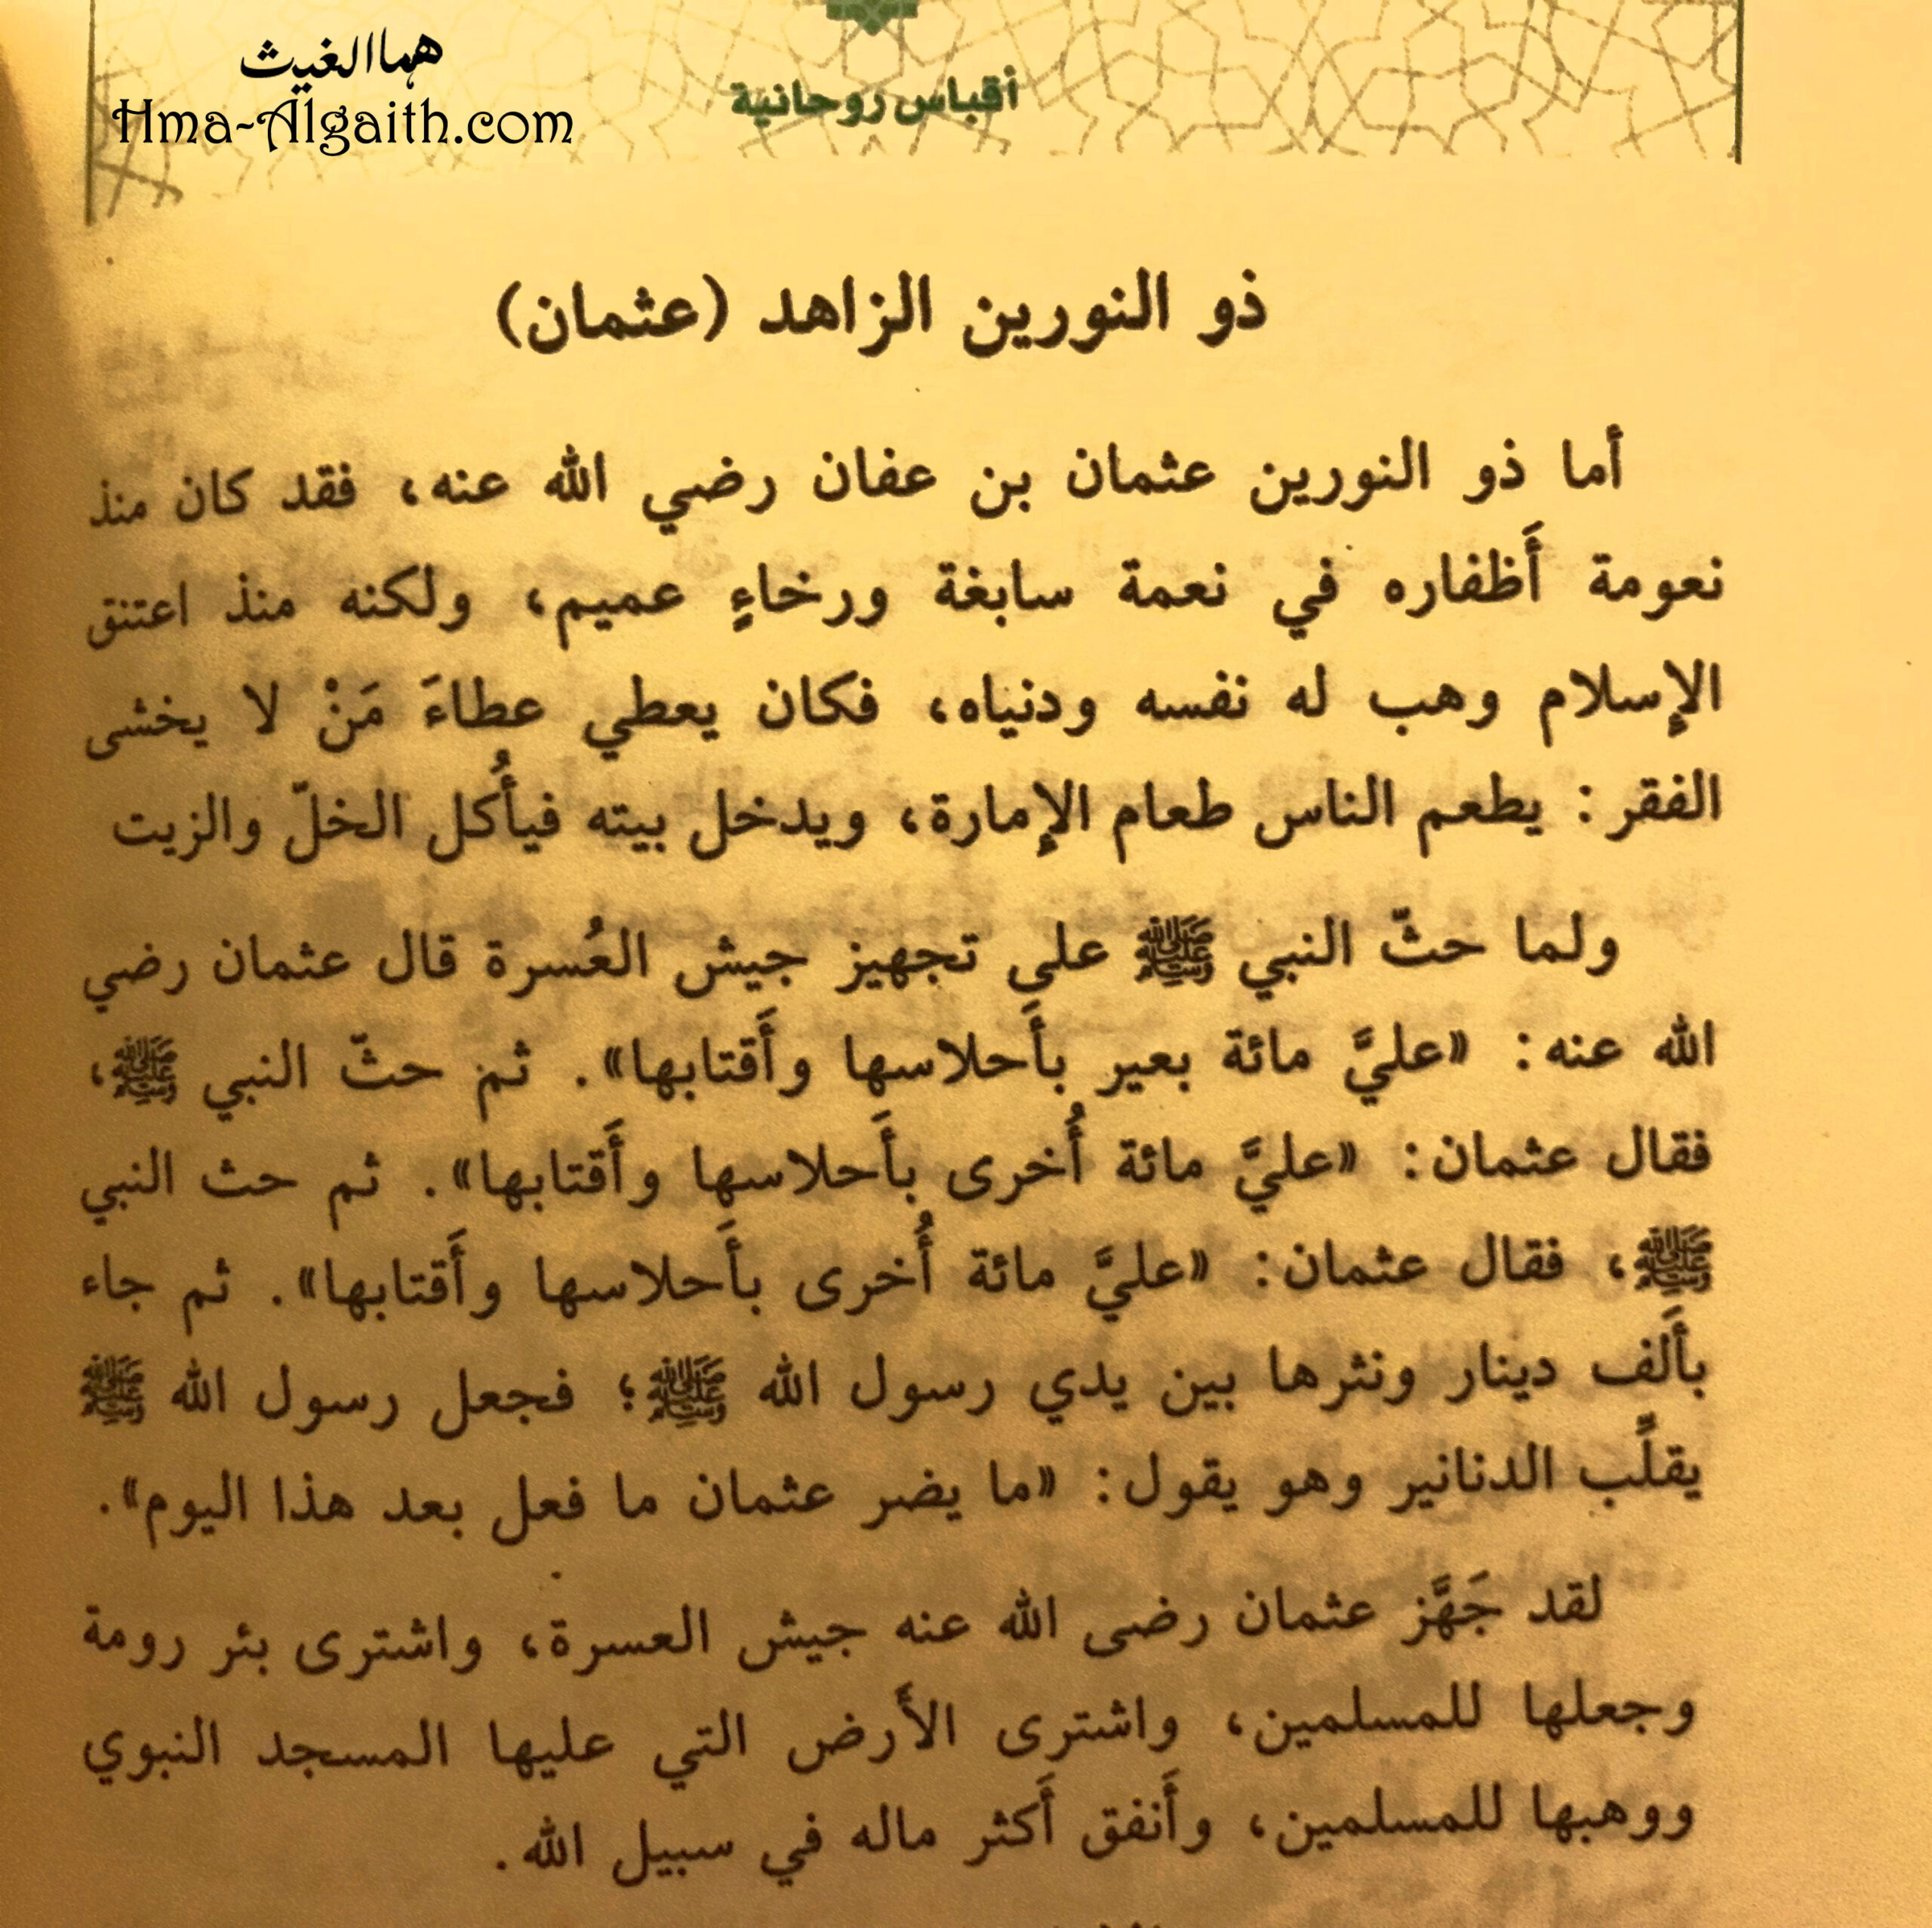 هماالغيث
Hma-Algaith.com
أقباس روحانية
ذو النورين الزاهد (عثمان)
أما ذو النورين عثمان بن عفان رضي الله عنه، فقد كان منذ
نعومة أَظفاره في نعمة سابغة ورخاءٍ عميم، ولكنه منذ اعتنق
الإسلام وهب له نفسه ودنياه، فكان يعطي عطاءَ مَنْ لا يخشى
الفقر: يطعم الناس طعام الإمارة، ويدخل بيته فيأُكل الخلّ والزيت
ولما حثّ النبي ﷺ على تجهيز جيش العُسرة قال عثمان رضي
الله عنه: «عليَّ مائة بعير بأَحلاسها وأَقتابها». ثم حثّ النبي ﷺ،
فقال عثمان: «عليَّ مائة أُخرى بأَحلاسها وأَقتابها». ثم حث النبي
ﷺ، فقال عثمان: «عليَّ مائة أُخرى بأَحلاسها وأَقتابها». ثم جاء
بأَلف دينار ونثرها بين يدي رسول الله ﷺ؛ فجعل رسول الله ﷺ
يقلِّب الدنانير وهو يقول: «ما يضر عثمان ما فعل بعد هذا اليوم».
لقد جَهَّز عثمان رضى الله عنه جيش العسرة، واشترى بئر رومة
وجعلها للمسلمين، واشترى الأَرض التي عليها المسجد النبوي
ووهبها للمسلمين، وأَنفق أَكثر ماله في سبيل الله.